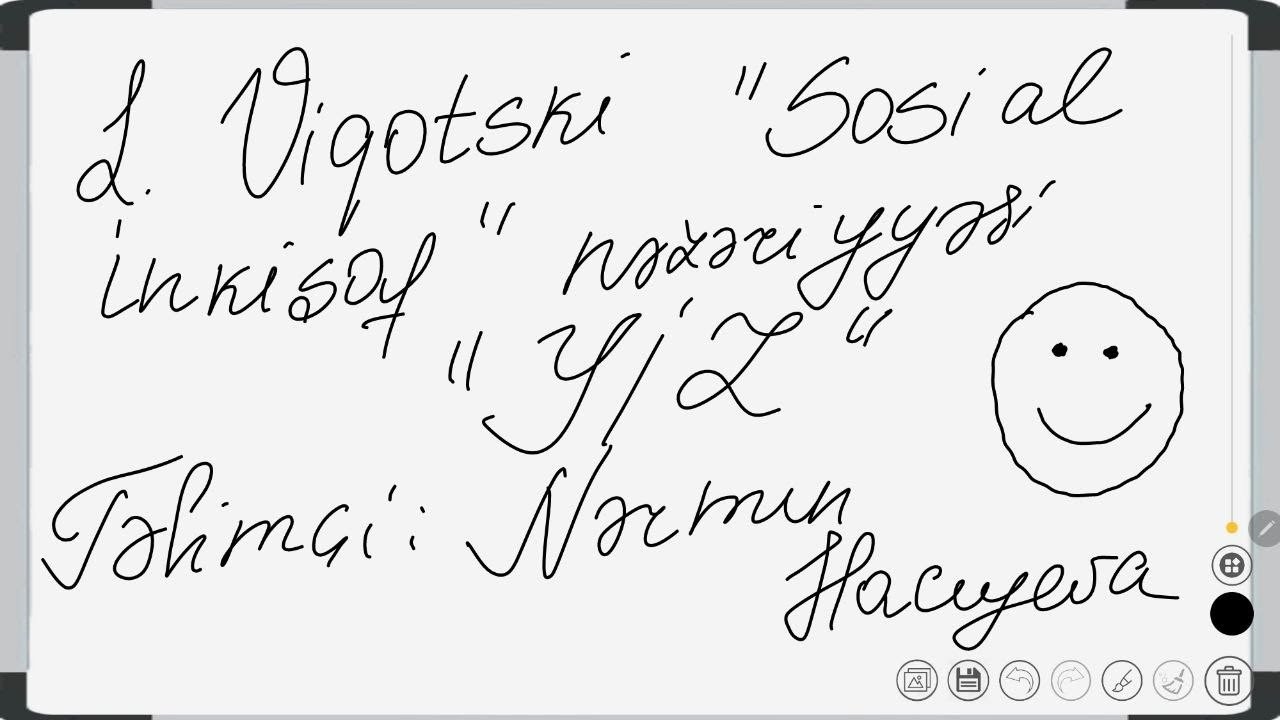 L. Vıqotski "Sosial
inkişaf" nəzəriyyəsi
"YİZ"
Təlimçi: Nərmin
Hacıyeva